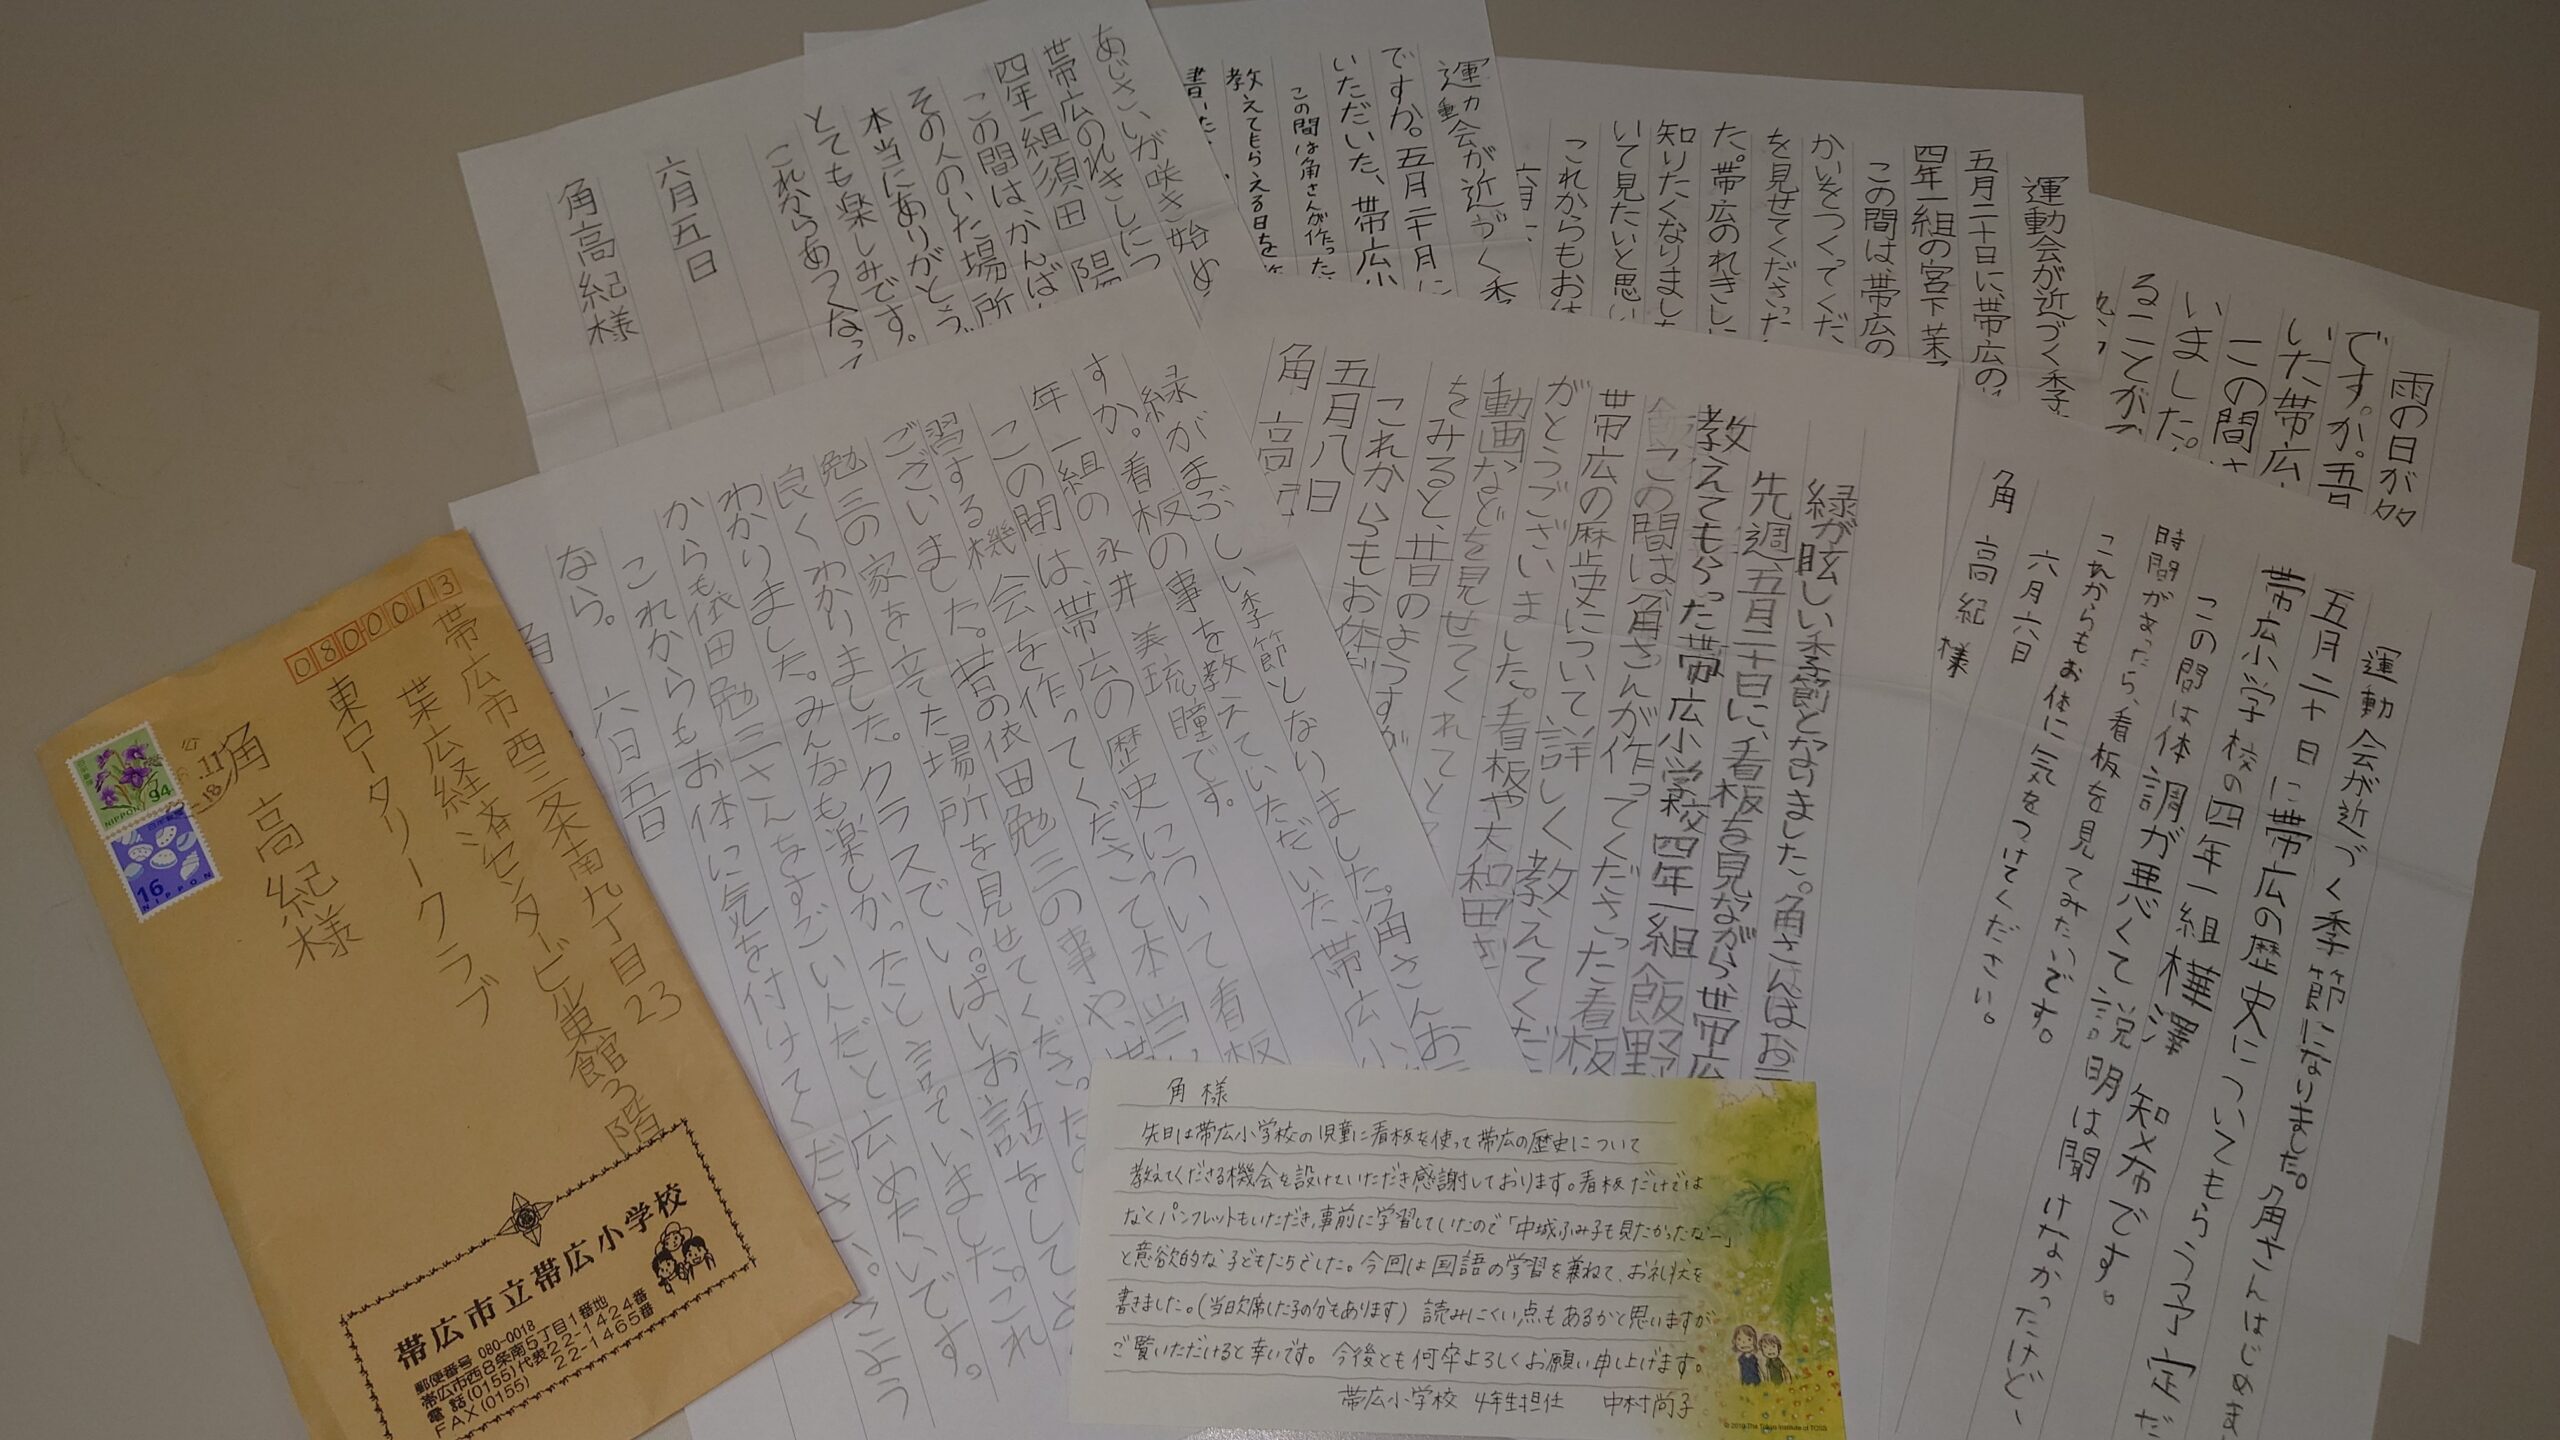 0800013
帯広市西三条南九丁目23
帯広経済センタービル東館3階
東ロータリークラブ
角 高紀様
NIPPON 94
16
NIPPON
帯広市立帯広小学校
郵便番号 080-0018
帯広市西8条南5丁目1番地
電話(0155)代表22-1424番
FAX(0155) 22-1465番
あじさいが咲き始め
帯広のれきしにつ
四年一組須田 陽
この間は、かんば
その人のいた場所
本当にありがとう
とても楽しみです。
これからあつくなって
六月五日
角高紀様
運動会が近づく季
ですか。五月二十日に
いただいた、帯広小
この間は角さんが作った
教えてもらえる日を
書いた
運動会が近づく季
五月二十日に帯広の
四年一組の宮下
この間は、帯広の
かいをつくってくだ
を見せてくださった
た。帯広のれきしに
知りたくなりました
いて見たいと思い
これからもお体
六月
雨の日が
ですか。五
いた帯広
この間
いました。
ることが
緑がまぶしい季節となりました。角さんお
すか。看板の事を教えていただいた、帯広小
年一組の永井 美琉瞳です。
この間は、帯広の歴史について看板
習する機会を作ってくださって本当
ございました。昔の依田勉三の事や、
勉三の家を立てた場所を見せてくださった。
良くわかりました。クラスでいっぱいお話をして
わかりました。みんなも楽しかったと言っていました。これ
からも依田勉三さんをすごい人だと広めたいです。
これからもお体に気を付けてください。さよう
なら。
六月五日
角
緑が眩しい季節となりました。角さんはお元
先週、五月二十日に、看板を見ながら、帯広
教えてもらった帯広小学校四年一組 飯野
この間は、角さんが作ってくださった看板
帯広の歴史について詳しく教えてくだ
がとうございました。看板や大和田さ
動画などを見せてくれてと
をみると、昔のようすが
これからもお体
五月八日
角 高
運動会が近づく季節になりました。角さんはじめま
五月二十日に帯広の歴史についてもらう予定だ
帯広小学校の四年一組樺澤 知布です。
この間は体調が悪くて説明は聞けなかったけど
時間があったら、看板を見てみたいです。
これからもお体に気をつけてください。
六月六日
角 高紀様
角 様
先日は帯広小学校の児童に看板を使って帯広の歴史について
教えてくださる機会を設けていただき感謝しております。看板だけでは
なくパンフレットもいただき、事前に学習していたので「中城ふみ子も見たかったなー」
と意欲的な子どもたちでした。今回は国語の学習を兼ねて、お礼状を
書きました。(当日欠席した子の分もあります) 読みにくい点もあるかと思いますが
ご覧いただけると幸いです。今後とも何卒よろしくお願い申し上げます。
帯広小学校 4年生担任 中村尚子